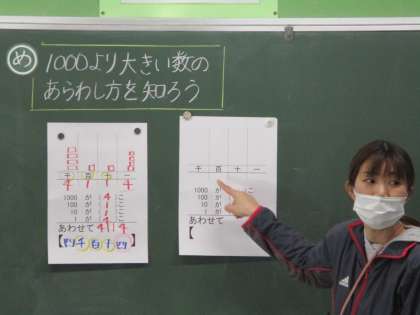 め
1000より大きい数の
あらわし方を知ろう
千 百 十 一
4 1 1 4
1000 が 4 こ
100 が 1 こ
10 が 1 こ
1 が 4 こ
あわせて 4114
千 百 十 一
1000 が こ
100 が
10 が
1 が
あわせて